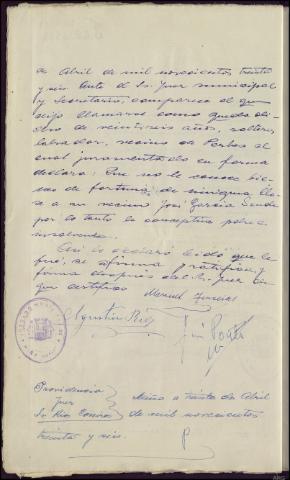 de Abril de mil novecientos treinta
y seis ante el Sr. Juez municipal
y Secretario, comparece el que
dijo llamarse como queda di-
cho de veintiseis años, soltero,
labrador, vecino de
el cual juramentado en forma
declara: Que no le conoce bie-
nes de fortuna, de ninguna cla-
se a su vecino José García
por lo tanto le conceptua pobre
insolvente.
Así lo declaró leido que le
fué, se afirma y ratifica y
firma después del Sr. Juez de
que certifico
Manuel
Agustín
José
Providencia
Juez
Sr. Rio
a treinta de Abril
de mil novecientos
treinta y seis.